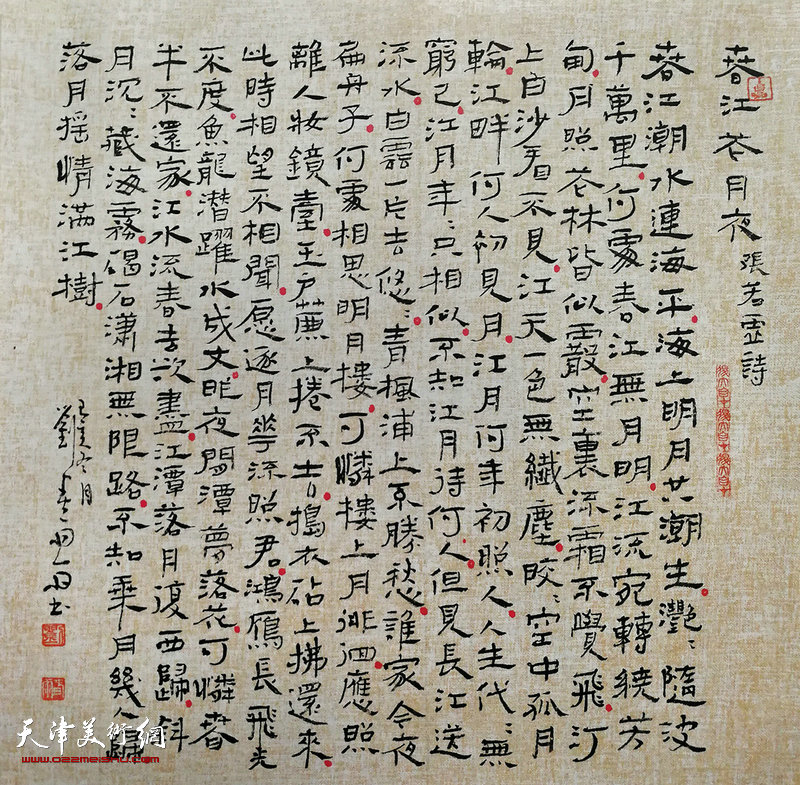 春江花月夜 張若虛詩
春江潮水連海平海上明月共潮生灩〻隨波
千萬里何處春江無月明江流宛轉繞芳
甸月照花林皆似霰空裏流霜不覺飛汀
上白沙看不見江天一色無纖塵皎〻空中孤月
輪江畔何人初見月江月何年初照人人生代〻無
窮已江月年〻只相似不知江月待何人但見長江送
流水白雲一片去悠〻青楓浦上不勝愁誰家今夜
扁舟子何處相思明月樓可憐樓上月徘徊應照
離人妝鏡臺玉戶簾上捲不去搗衣砧上拂還來
此時相望不相聞愿逐月華流照君鴻鴈長飛光
不度魚龍潛躍水成文昨夜閒潭夢落花可憐春
半不還家江水流春去欲盡江潭落月復西歸斜
月沉〻藏海霧碣石瀟湘無限路不知乘月幾人歸
落月搖情滿江樹
冬月
劉春雨書
天津美術網
www.022meishu.com